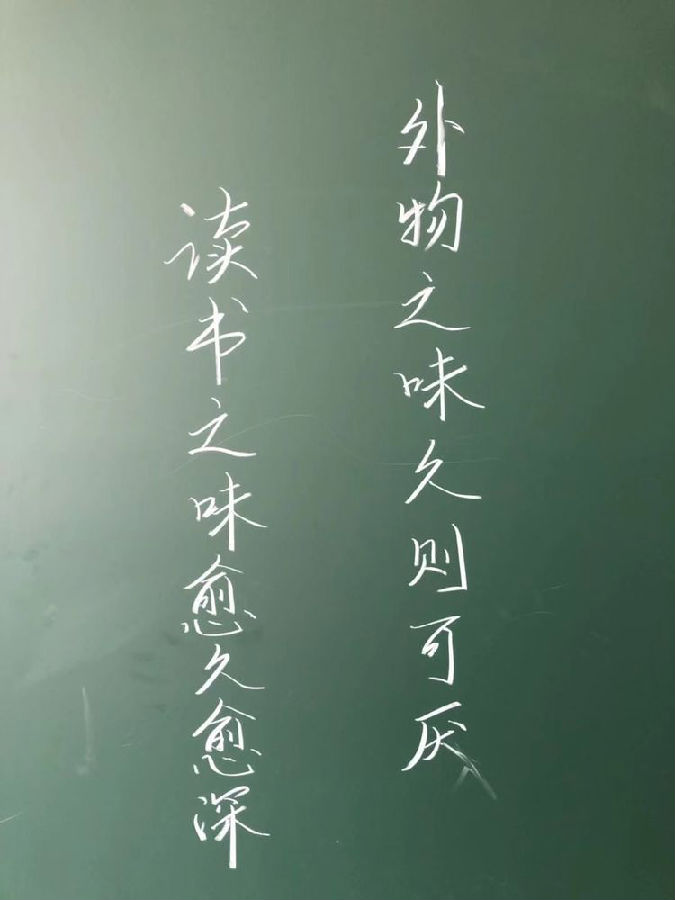 外物之味久则可厌
读书之味愈久愈深